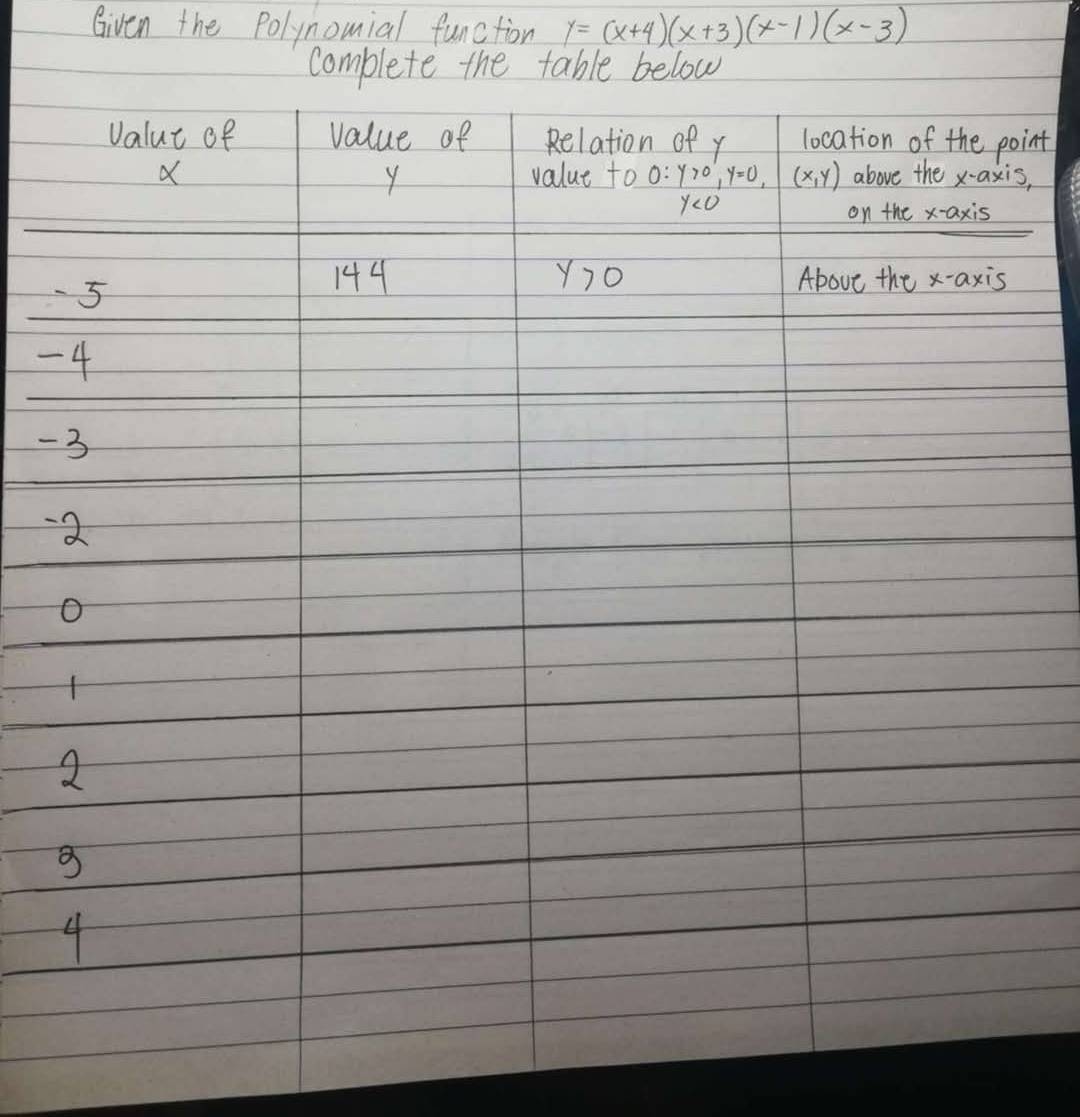 Given the Polynomial function y= (x+4)(x+3)(x-1)(x-3)
Complete the table below
Value of
x
Value of
y
Relation of y
value to 0: y>0, y=0,
y<0
location of the point
(x,y) above the x-axis,
on the x-axis
-5 144 y>0 Above the x-axis
-4
-3
-2
0
1
2
3
4